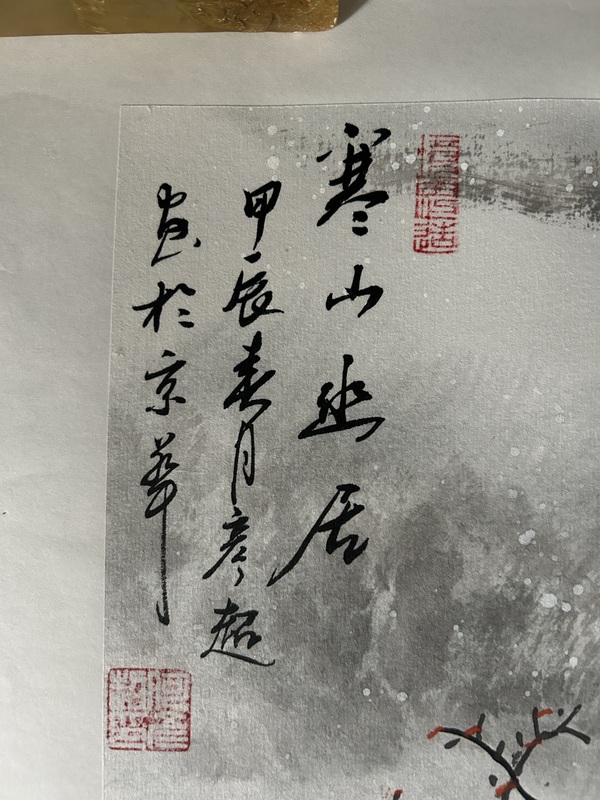 寒山幽居
甲辰春月彦超
画於京華